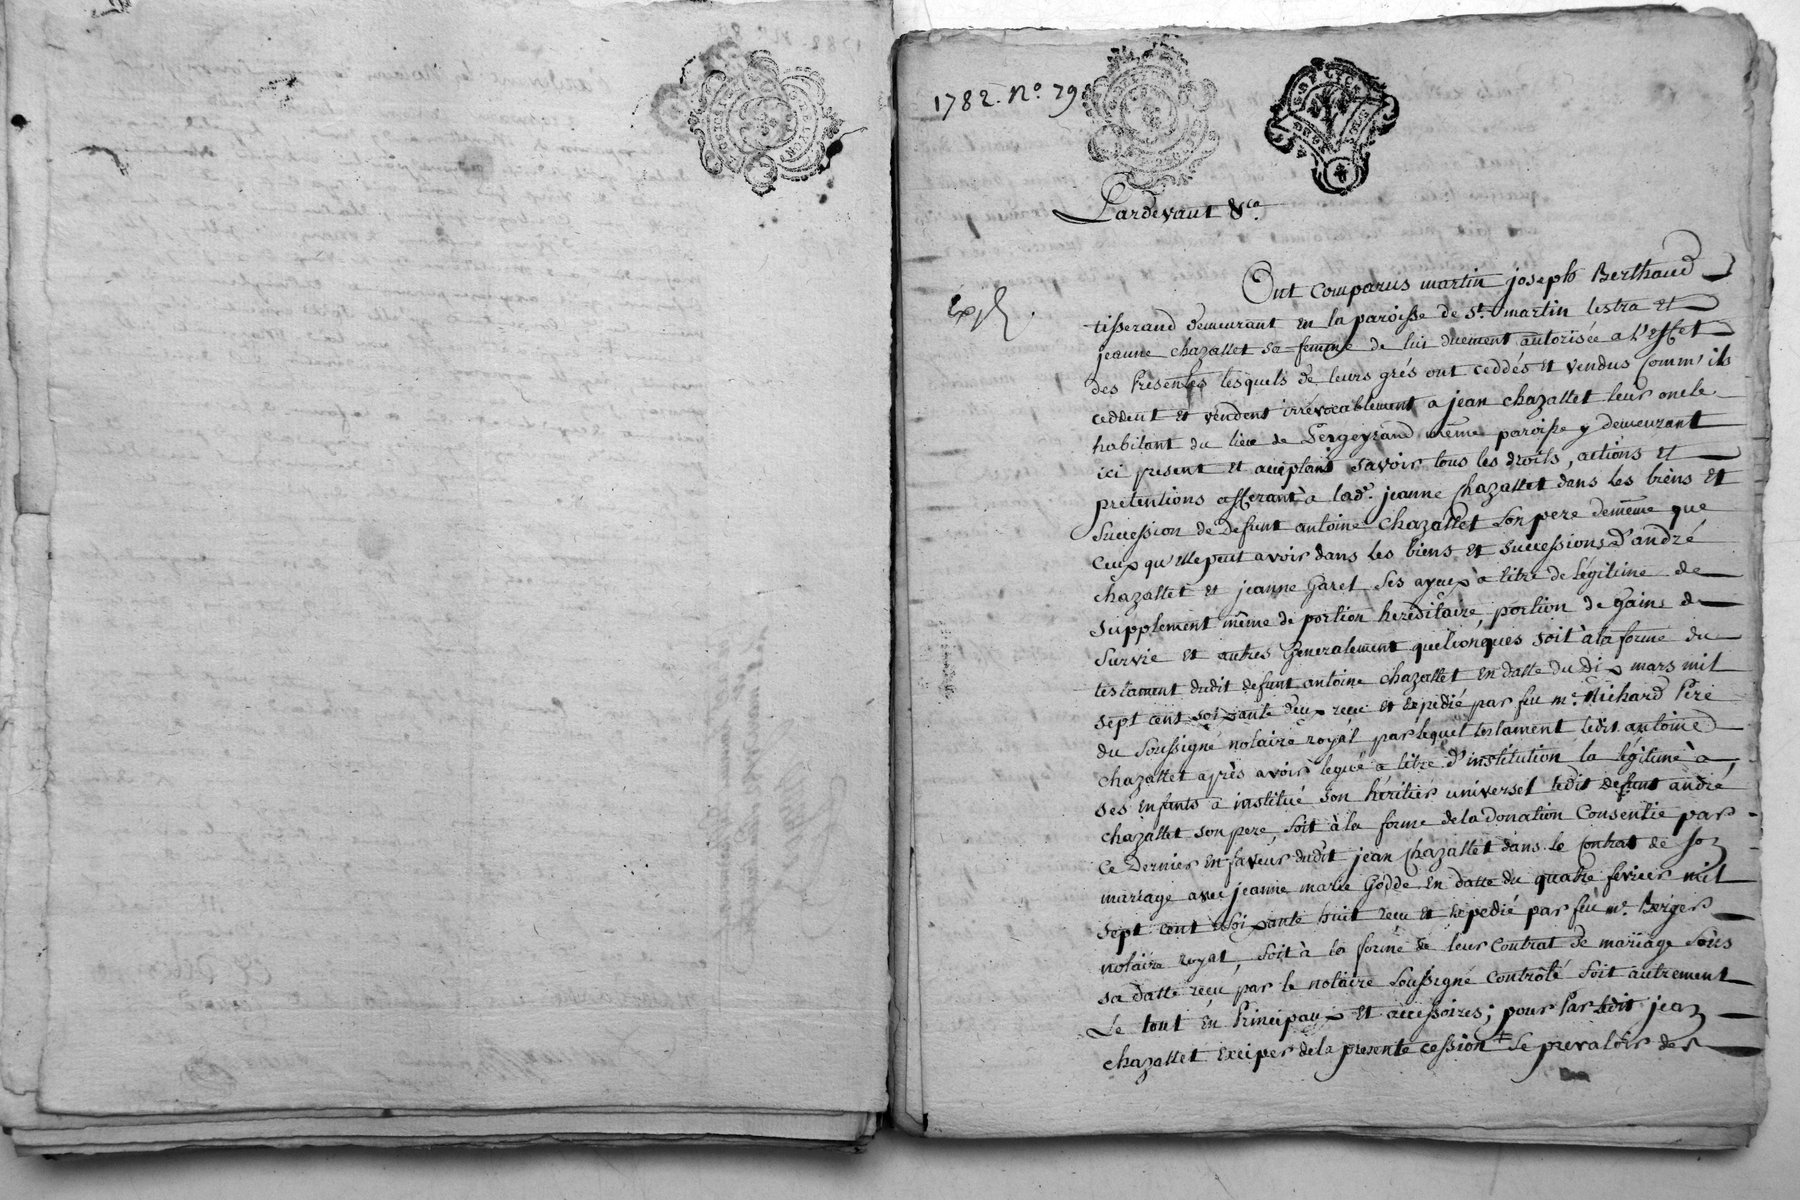 1782. No. 79
Pardevant &ca.
exp.
Ont comparus martin joseph Berthaud
tisserand demeurant en la paroisse de St. martin lestra et
jeanne chazallet sa femme de lui duement autorisée a l'effet
des presentes lesquels de leurs grés ont ceddés et vendus comm' ils
ceddent et vendent irrévocablement a jean chazallet leur oncle
habitant du lieu de même paroisse y demeurant
ici present et acceptant savoir tous les droits, actions et
pretentions afferant à lade. jeanne chazallet dans les biens et
succession de defunt antoine chazallet son pere demême que
ceux qu'elle peut avoir dans les biens et successions d'andré
chazallet et jeanne Garel ses ayeux à titre de légitime de
supplement même de portion hereditaire, portion de gains de
survie et autres generalement quelconques soit à la forme du
testament dudit defunt antoine chazallet en datte du dix mars mil
sept cent soixante deux recu et expedié par feu me. Richard Pere
du soussigné notaire royal par lequel testament ledit antoine
chazallet après avoir legué a titre d'institution la légitime à
ses enfants a institué son héritier universel ledit defunt andré
chazallet son pere, soit à la forme de la donation consentie par
ce dernier en faveur dudit jean chazallet dans le contrat de son
mariage avec jeanne marie Godde en datte du quatre fevrier mil
sept cent soixante huit recu et expedié par feu me. Berger
notaire royal, soit à la forme de leur contrat de mariage sous
sa datte recu par le notaire soussigné controlé soit autrement
le tout en principaux et accessoires; pour par ledit jean
chazallet exciper de la presente cession + se prevaloir des